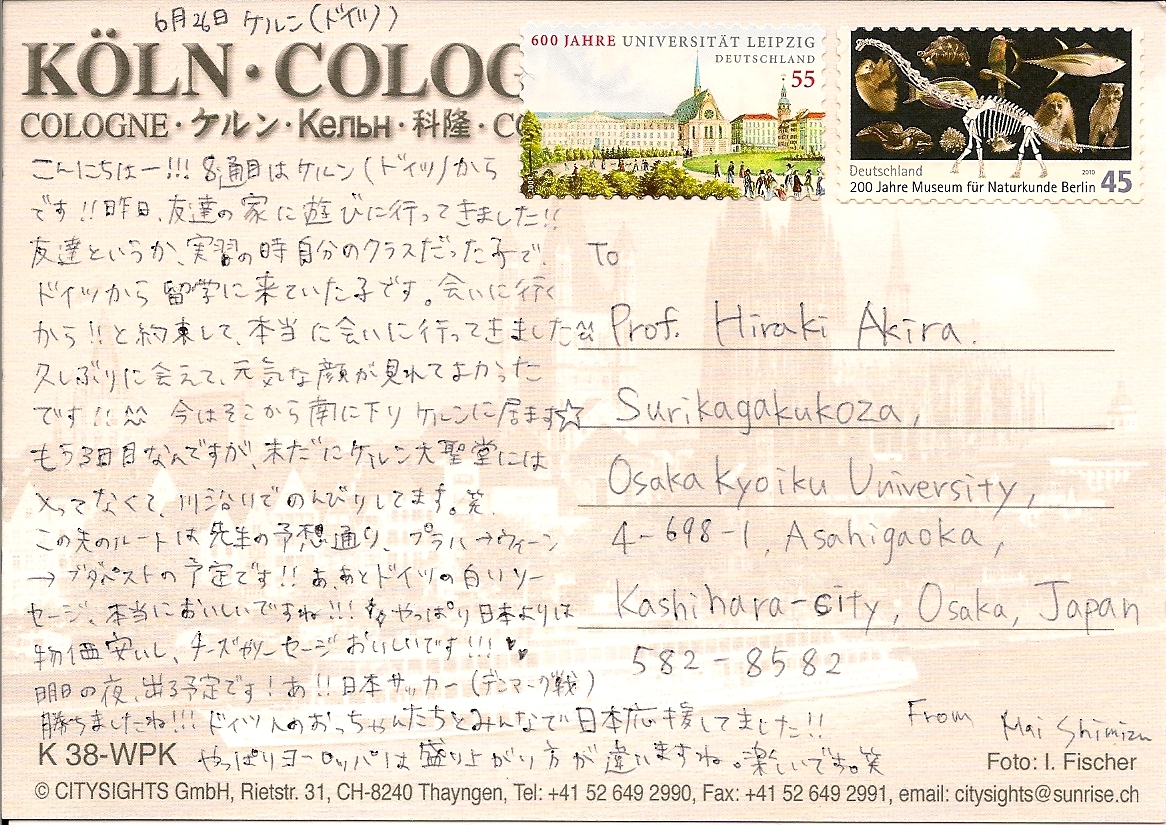 6月26日 ケルン(ドイツ)
KÖLN・COLOG
COLOGNE・ケルン・Кельн・科隆・CO
600 JAHRE UNIVERSITÄT LEIPZIG
DEUTSCHLAND
55
Deutschland
2010
200 Jahre Museum für Naturkunde Berlin 45
こんにちはー!!! 8通目はケルン(ドイツ)から
です!!昨日、友達の家に遊びに行ってきました!!
友達というか、実習の時自分のクラスだった子で、
ドイツから留学に来ていた子です。会いに行く
から!!と約束して、本当に会いに行ってきました^^
久しぶりに会えて、元気な顔が見れてよかった
です!!^^ 今はそこから南に下りケルンに居ます☆
もう3日目なんですが、未だにケルン大聖堂には
入ってなくて、川沿いでのんびりしてます。笑
この先のルートは先生の予想通り、プラハ→ウィーン
→ブダペストの予定です!! あ、あとドイツの白いソー
セージ、本当においしいですね!!! やっぱり日本よりは
物価安いし、チーズやソーセージおいしいです!!!
明日の夜、出る予定です! あ!!日本サッカー(デンマーク戦)
勝ちましたね!!! ドイツ人のおっちゃんたちとみんなで日本応援してました!!
やっぱりヨーロッパは盛り上がり方が違いますね。楽しいです。笑
To
Prof. Hiraki Akira.
Surikagakukoza,
Osaka Kyoiku University,
4-698-1, Asahigaoka,
Kashihara-city, Osaka, Japan
582-8582
From Mai Shimizu
K 38-WPK
Foto: I. Fischer
© CITYSIGHTS GmbH, Rietstr. 31, CH-8240 Thayngen, Tel: +41 52 649 2990, Fax: +41 52 649 2991, email: citysights@sunrise.ch